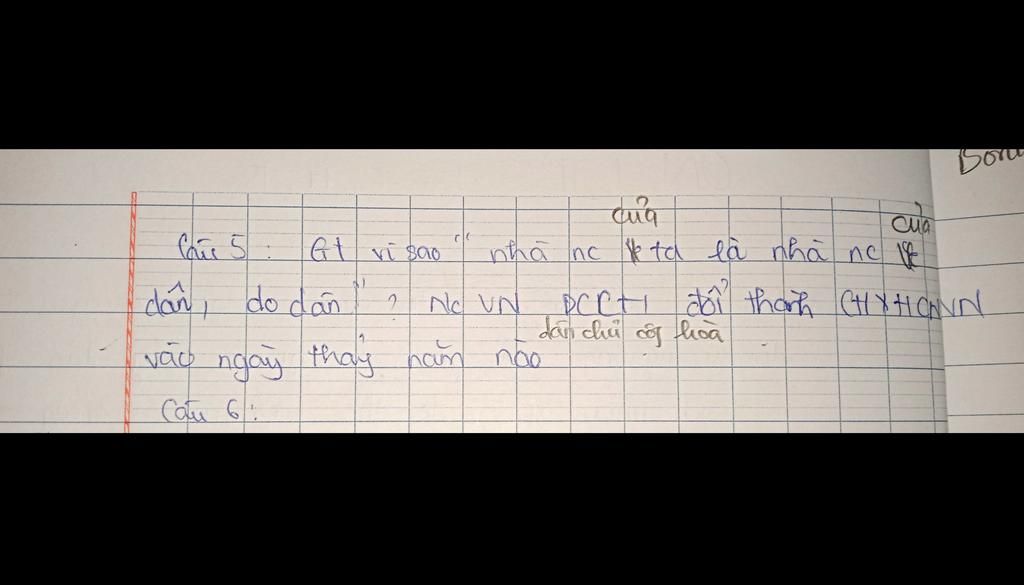 Bộn
của
của
Câu 5: Gt vì sao "nhà nc ta là nhà nc
dân, do dân"? Nc VN DCCH đổi thành CHXHCNVN
dân chủ cộg hoà
vào ngày thág năm nào
Câu 6: